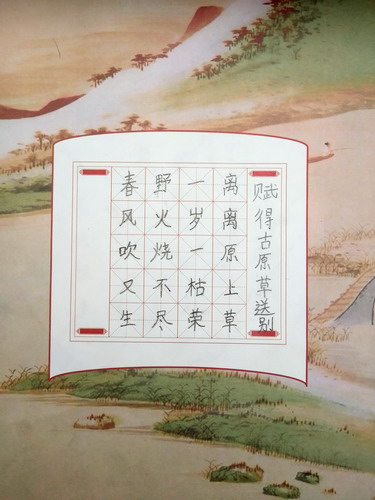 赋得古原草送别
离离原上草
一岁一枯荣
野火烧不尽
春风吹又生